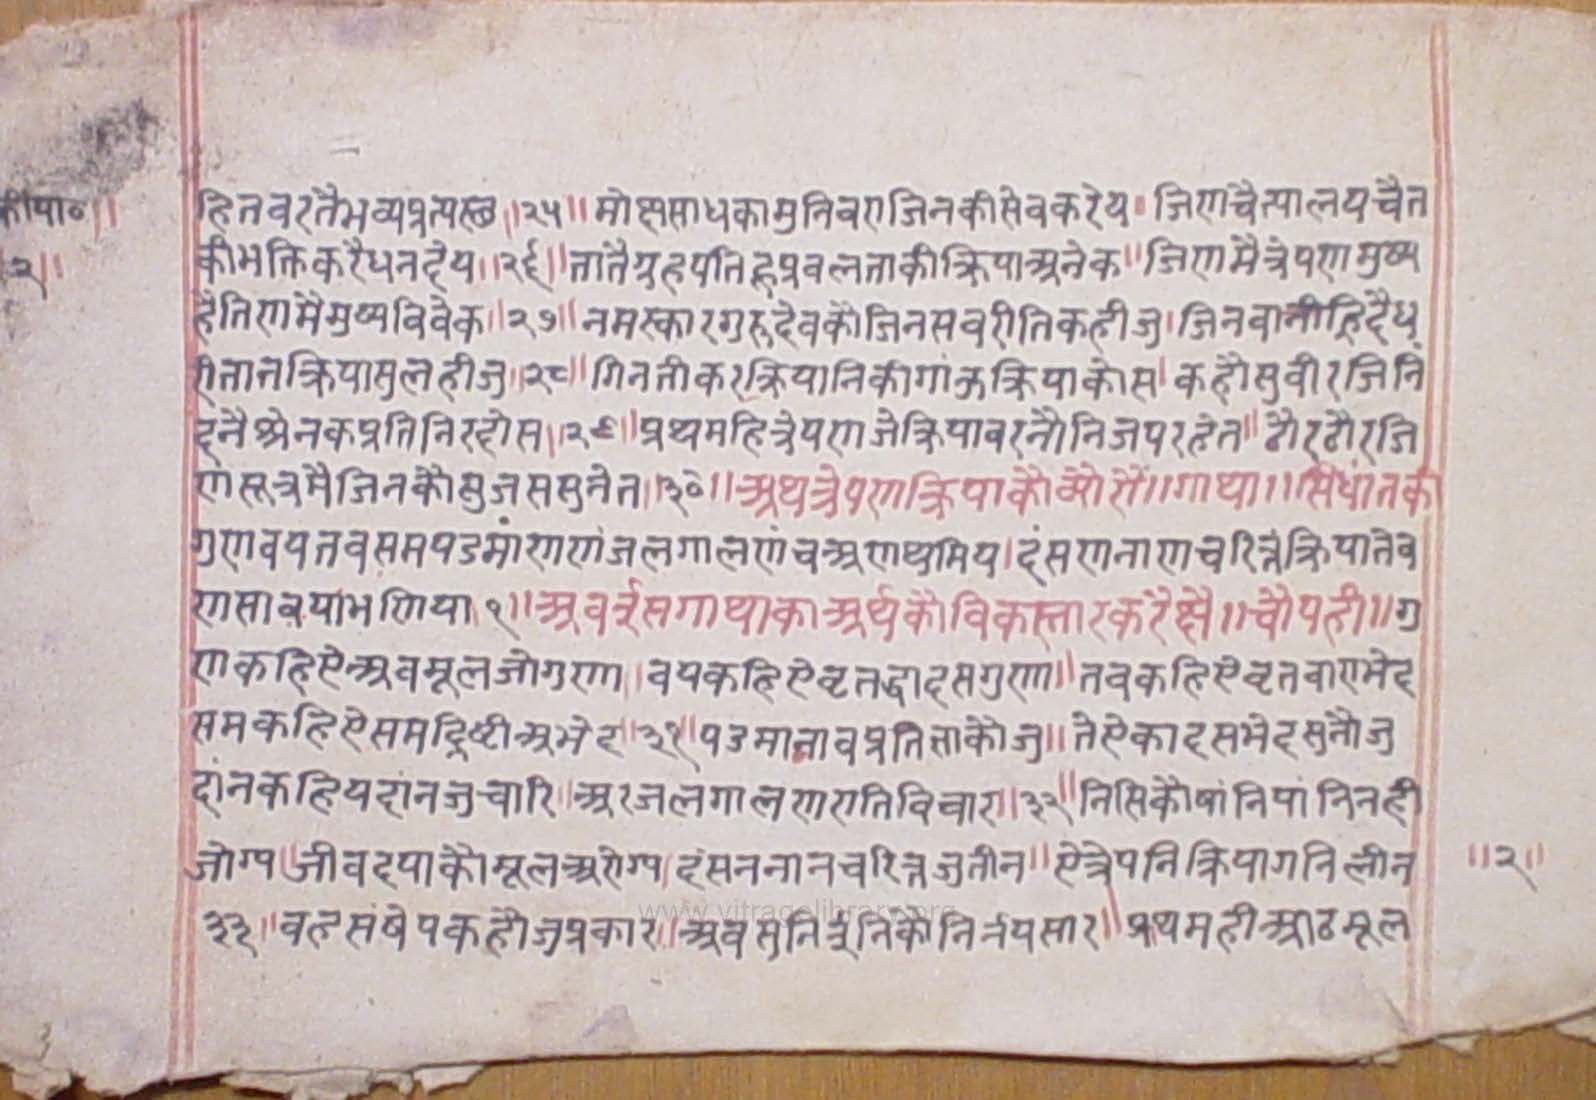 हित वरतै भव्य प्रत्यस्छ ॥२५॥ मोक्षसाधका मुनिवरा जिनकी सेव करेय। जिणचैत्यालय चैत
कीपा०॥
की भक्ति करै धन देय॥२६॥ तातै ग्रहपति हू प्रवल ताकी क्रिया अनेक॥ जिणमै त्रेपण मुष्य
२॥
है तिणमै मुष्य विवेक॥२७॥ नमस्कार गुरुदेव कौ जिन सव रीति कही जु। जिनवानी हिरदै ध
री ताने क्रिया सु लही जु॥२८॥ गिनती कर क्रियानि की गांऊ क्रियाकोस। कहौ सु वीर जिनिं
द नै श्रेनक प्रति निरदोस॥२९॥ प्रथमहि त्रेपण जे क्रिया वरनौ निज पर हेत॥ ठौर ठौर जि
ण सूत्र मै जिनकौ सुजस सुनेत॥३०॥ अथ त्रेपण क्रिया कौ व्योरो॥ गाथा॥ सिधांतकी
गुण वय तव सम पडमां णणं जलगालणं च अणथमिय। दंसण नाण चरित्रं क्रिया तेव
ण सावयां भणिया १॥ अव ईस गाथा का अर्थ कौ विकास्तार करै छै॥ चौपही॥ गु
ण कहिऐ अव मूल जो गुण॥ वय कहिऐ व्रत द्वादस गुण॥ तव कहिऐ व्रत वारा भेद
सम कहिऐ समद्रिष्टी अभेद॥३१॥ पडमा नाव प्रतिसा कौ जु॥ ते ऐकादस भेद सुनौ जु
दांन कहिय दांन जु चारि॥ अर जलगालण राति विचार॥३२॥ निसि कौ षांनि पांनि नही
जोग्य॥ जीवदया कौ मूल अरोग्य। दंसन नान चरित्र जु तीन॥ ऐ त्रेपनि क्रिया गनि लीन
॥२॥
३३॥ वहु संषेप कहौ जु प्रकार॥ अव सुनि ईनिकौ निर्नय सार॥ प्रथमही आठ मूल
www.vitragelibrary.org